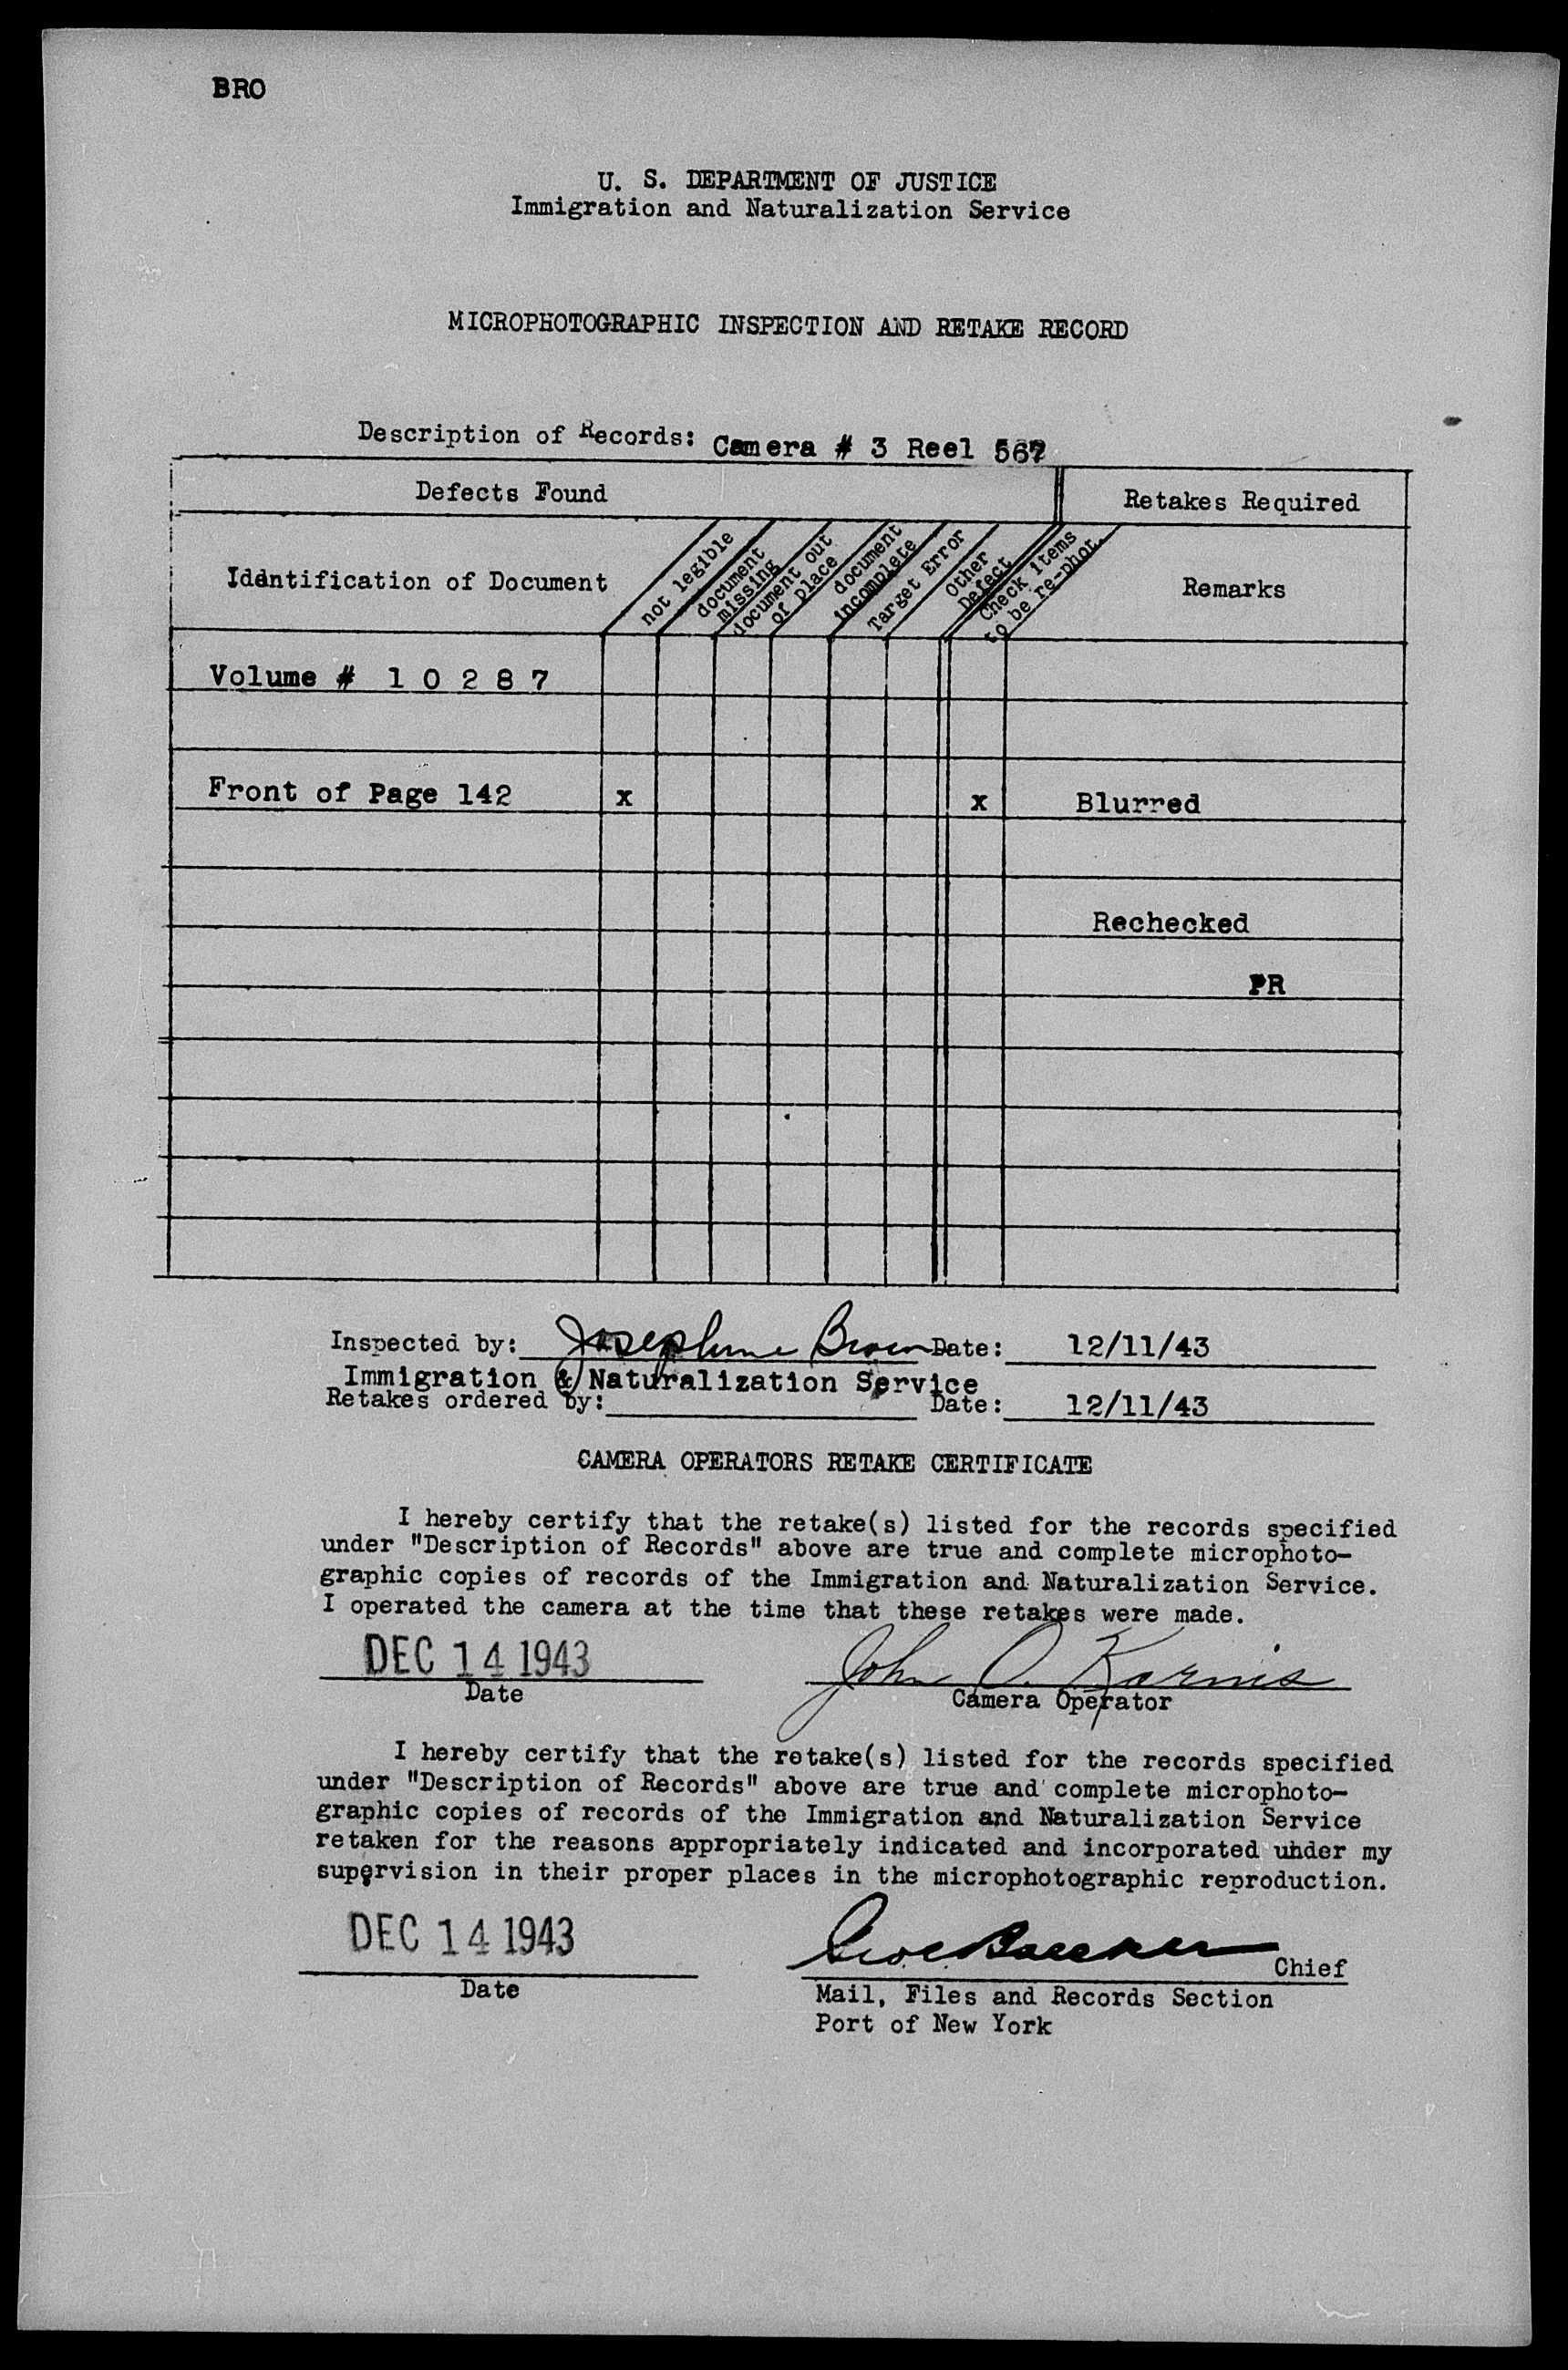 BRO
U. S. DEPARTMENT OF JUSTICE
Immigration and Naturalization Service
MICROPHOTOGRAPHIC INSPECTION AND RETAKE RECORD
Description of Records: Camera # 3 Reel
Defects Found
Retakes Required
Idéntification of Document
not legible
document missing
document out of place
document incomplete
Target Error
Other Defect
Check items to be re-phot.
Remarks
Volume # 1 0 2 8 7
Front of Page 142 x x Blurred
Rechecked
PR
Inspected by: Josephine Brown Date: 12/11/43
Immigration & Naturalization Service
Retakes ordered by: Date: 12/11/43
CAMERA OPERATORS RETAKE CERTIFICATE
I hereby certify that the retake(s) listed for the records specified
under "Description of Records" above are true and complete microphoto-
graphic copies of records of the Immigration and Naturalization Service.
I operated the camera at the time that these retakes were made.
DEC 14 1943 John O. Karnis
Date Camera Operator
I hereby certify that the retake(s) listed for the records specified
under "Description of Records" above are true and complete microphoto-
graphic copies of records of the Immigration and Naturalization Service
retaken for the reasons appropriately indicated and incorporated under my
supervision in their proper places in the microphotographic reproduction.
DEC 14 1943 Chief
Date
Mail, Files and Records Section
Port of New York